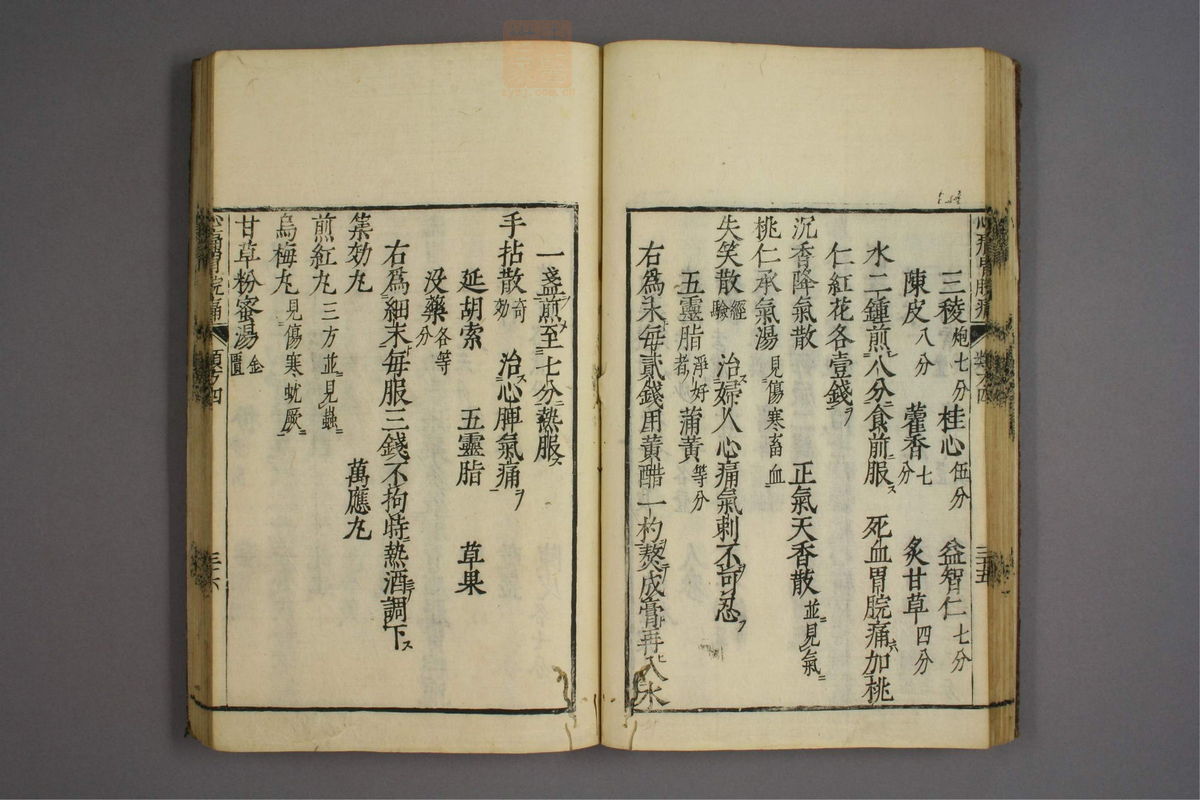 三稜炮七分 桂心伍分 益智仁七分
陳皮八分 藿香七分 炙甘草四分
水二鍾煎八分食前服 死血胃脘痛加桃
仁紅花各壹錢
沉香降氣散 正氣天香散並見氣
桃仁承氣湯見傷寒畜血
失笑散經驗 治婦人心痛氣刺不可忍
五靈脂淨好者 蒲黃等分
右爲末每貳錢用黃醋一杓熬成膏再入水
一盞煎至七分熱服
手拈散奇効 治心脾氣痛
延胡索 五靈脂 草果
没藥各等分
右爲細末每服三錢不拘時熱酒調下
集効丸 萬應丸
煎紅丸三方並見蟲
烏梅丸見傷寒蚘厥
甘草粉蜜湯金匱